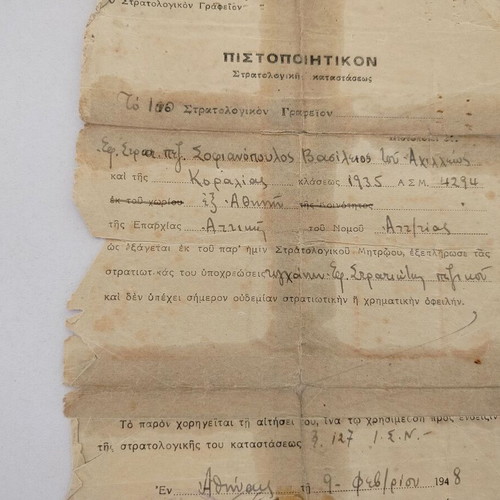 Στρατολογικόν Γραφεῖον
ΠΙΣΤΟΠΟΙΗΤΙΚΟΝ
Στρατολογικῆς καταστάσεως
Τὸ Στρατολογικὸν Γραφεῖον
Ἐφ. Στρατ. πεζ. Σοφιανόπουλος Βασίλειος τοῦ Ἀχιλλέως
καὶ τῆς Κοραλίας κλάσεως 1935 ΑΣΜ. 4294
ἐκ τοῦ χωρίου ἐξ Ἀθηνῶν τῆς Κοινότητος
τῆς Ἐπαρχίας Ἀττικῆς τοῦ Νομοῦ Ἀττικῆς
ὡς ἐξάγεται ἐκ τοῦ παρ' ἡμῖν Στρατολογικοῦ Μητρῴου, ἐξεπλήρωσε τὰς
στρατιωτικάς του ὑποχρεώσεις τυγχάνων Ἐφ. Στρατιώτης πεζικοῦ
καὶ δὲν ὑπέχει σήμερον οὐδεμίαν στρατιωτικὴν ἢ χρηματικὴν ὀφειλήν.
Τὸ παρὸν χορηγεῖται τῇ αἰτήσει του, ἵνα τῷ χρησιμεύσῃ πρὸς ἔνδειξιν
τῆς στρατολογικῆς του καταστάσεως § 127 Ι.Σ.Ν.-
Ἐν Ἀθήναις τῇ 9 Φεβρ/ρίου 1948